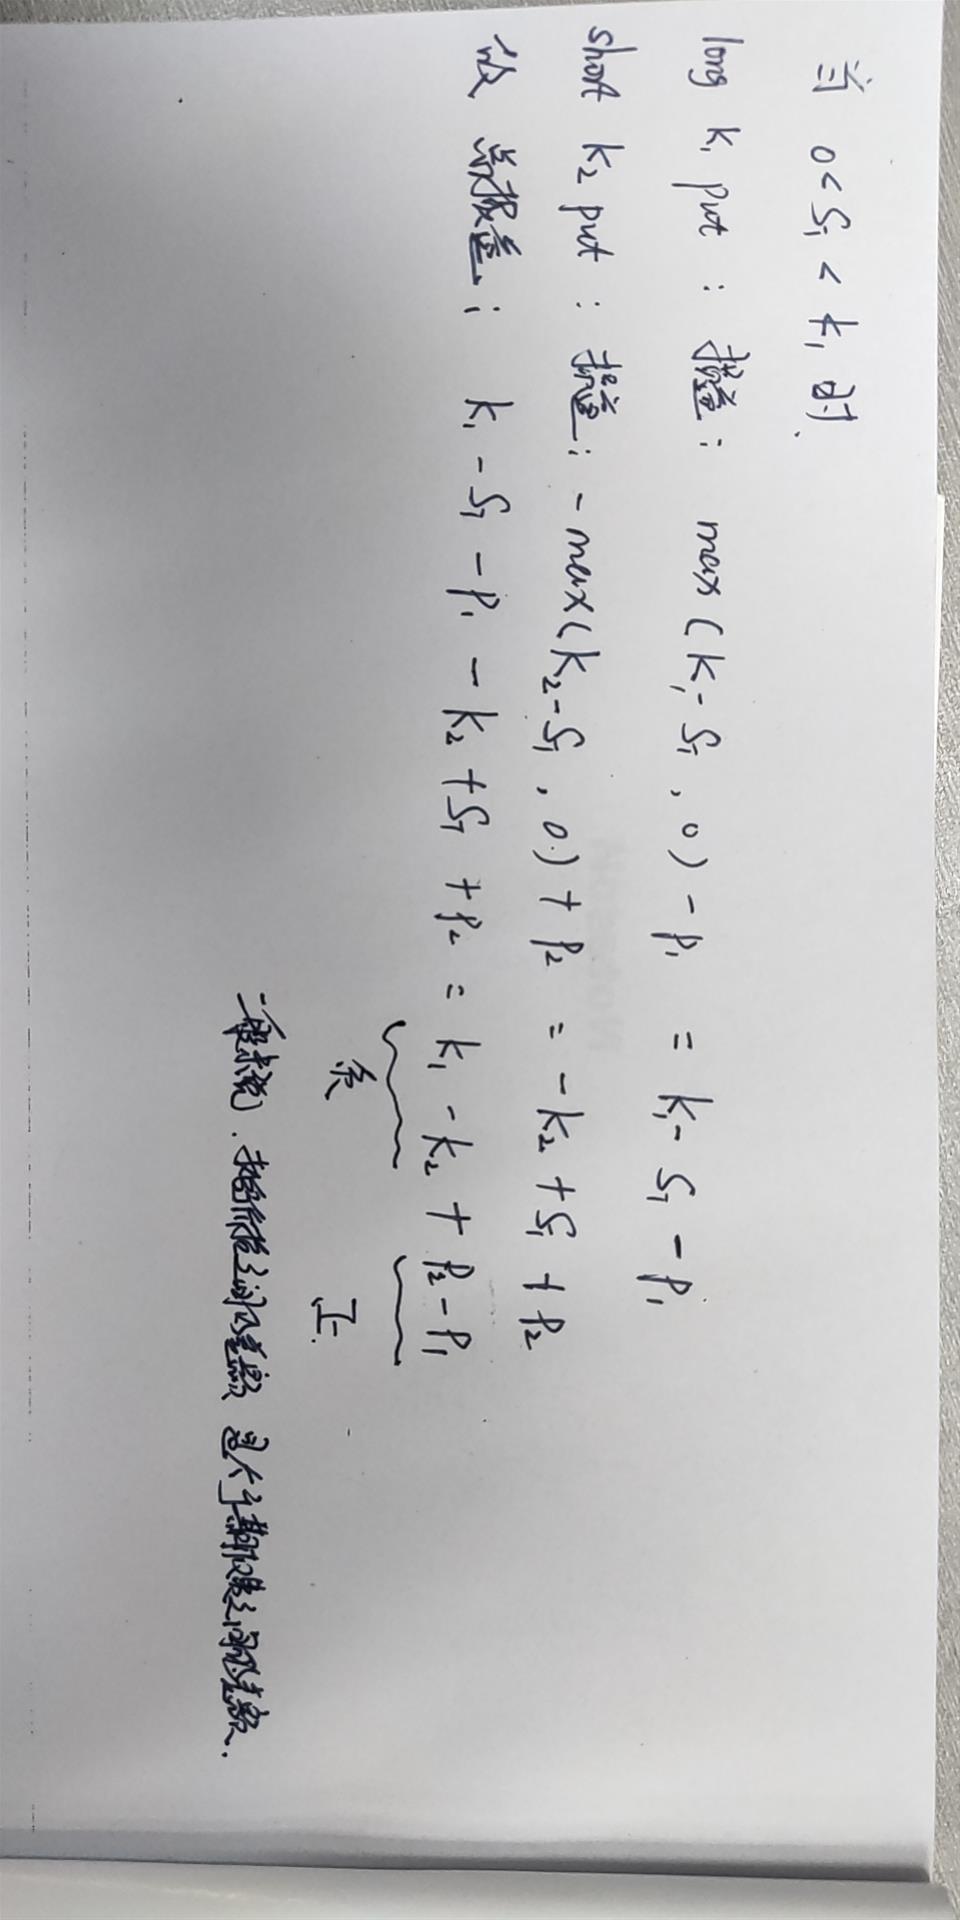 当 0 < S₁ < k₁ 时.
long k₁ put : 损益 : max ( k₁ - S₁ , 0 ) - P₁ = k₁ - S₁ - P₁
short k₂ put : 损益 : - max ( k₂ - S₁ , 0 ) + P₂ = - k₂ + S₁ + P₂
故 总损益 : k₁ - S₁ - P₁ - k₂ + S₁ + P₂ = k₁ - k₂ + P₂ - P₁
负 正.
一般来说. 执行价格之间的差额 是大于期权费之间的差额.